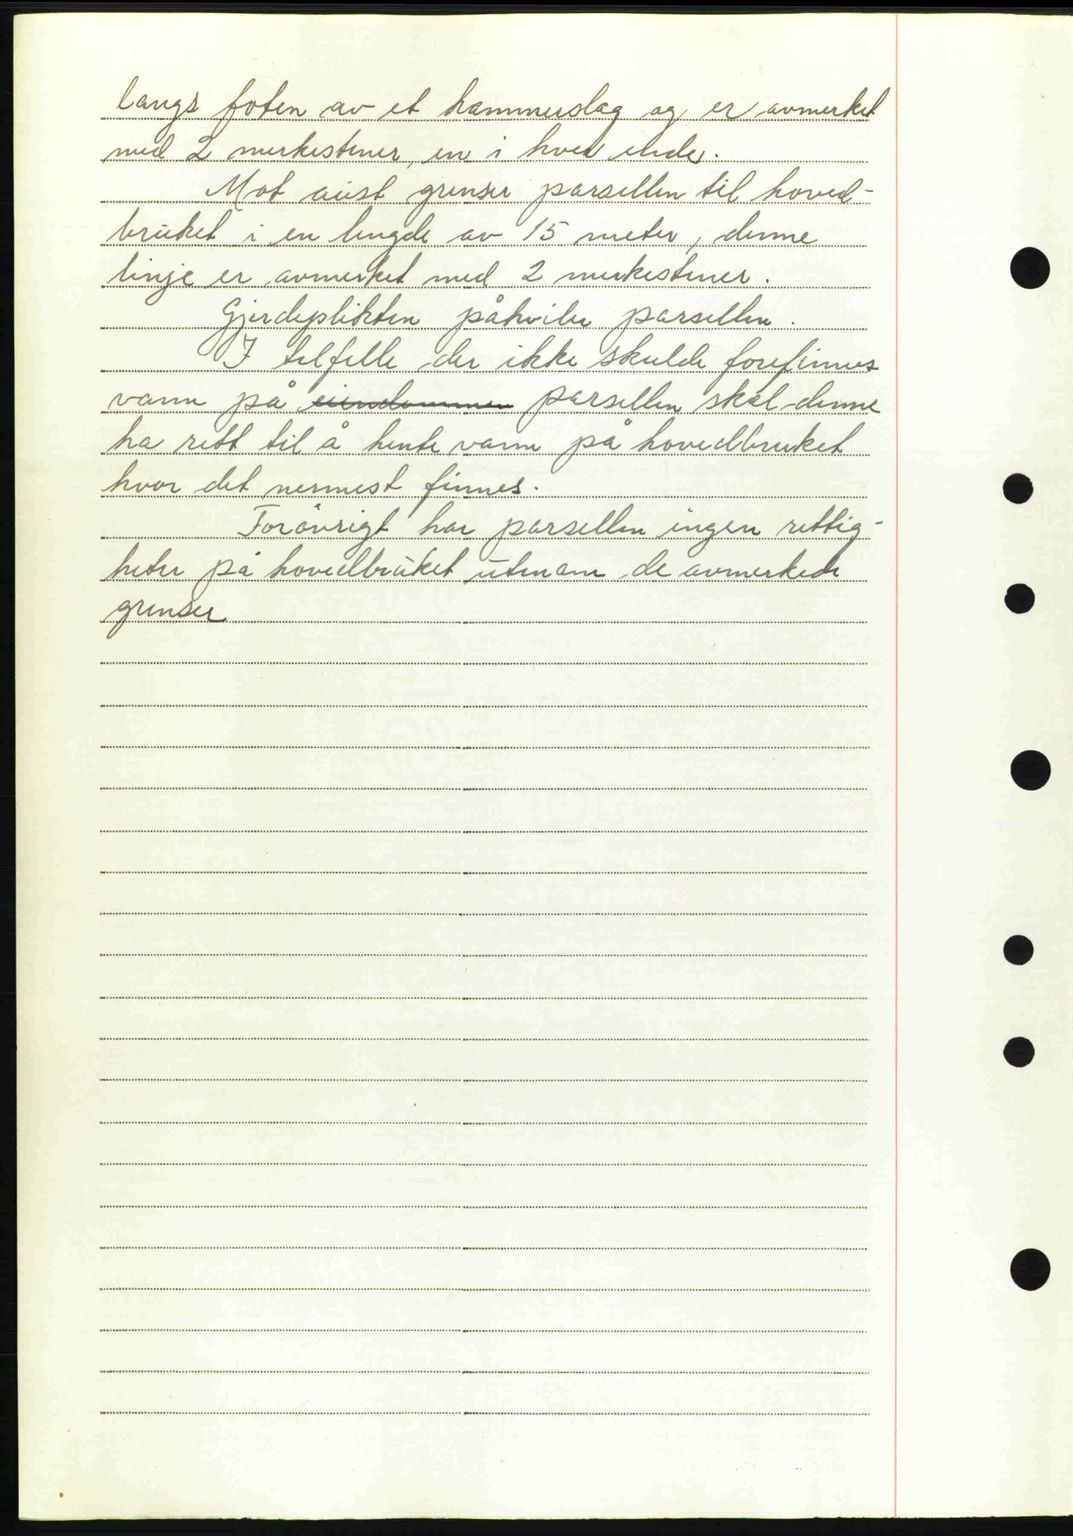 langs foten av et hammerslag og er avmerket
med 2 merkestener, en i hver ende.
Mot aust grenser parsellen til hoved-
bruket i en lengde av 15 meter, denne
linje er avmerket med 2 merkestener.
Gjerdeplikten påhviler parsellen.
I tilfelle der ikke skulde forefinnes
vann på eiendommen parsellen skal denne
ha rett til å hente vann på hovedbruket
hvor det nermest finnes.
Forøvrigt har parsellen ingen rettig-
heter på hovedbruket utenom de avmerkede
grenser